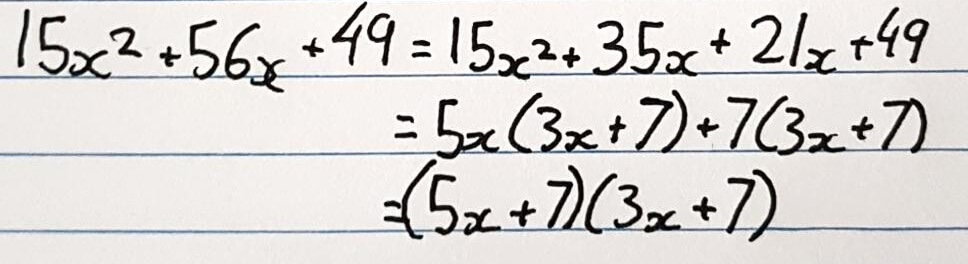 15x² + 56x + 49 = 15x² + 35x + 21x + 49
= 5x(3x + 7) + 7(3x + 7)
= (5x + 7)(3x + 7)